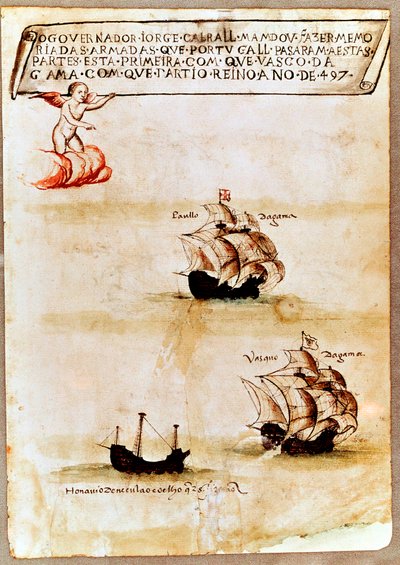 OGOVERNADOR·IORGE·CABRALL·MAMDOV·FAZER MEMO
RIADAS·ARMADAS·QVE·PORTVGALL·PASARAM·AESTAS·
PARTES·ESTA·PRIMEIRA·COM·QVE·VASCO·DA
GAMA·COM·QVE·PARTIO·REINO·ANO·DE·497·
Paullo Dagama
Vasquo Dagama
Honauio De coelho